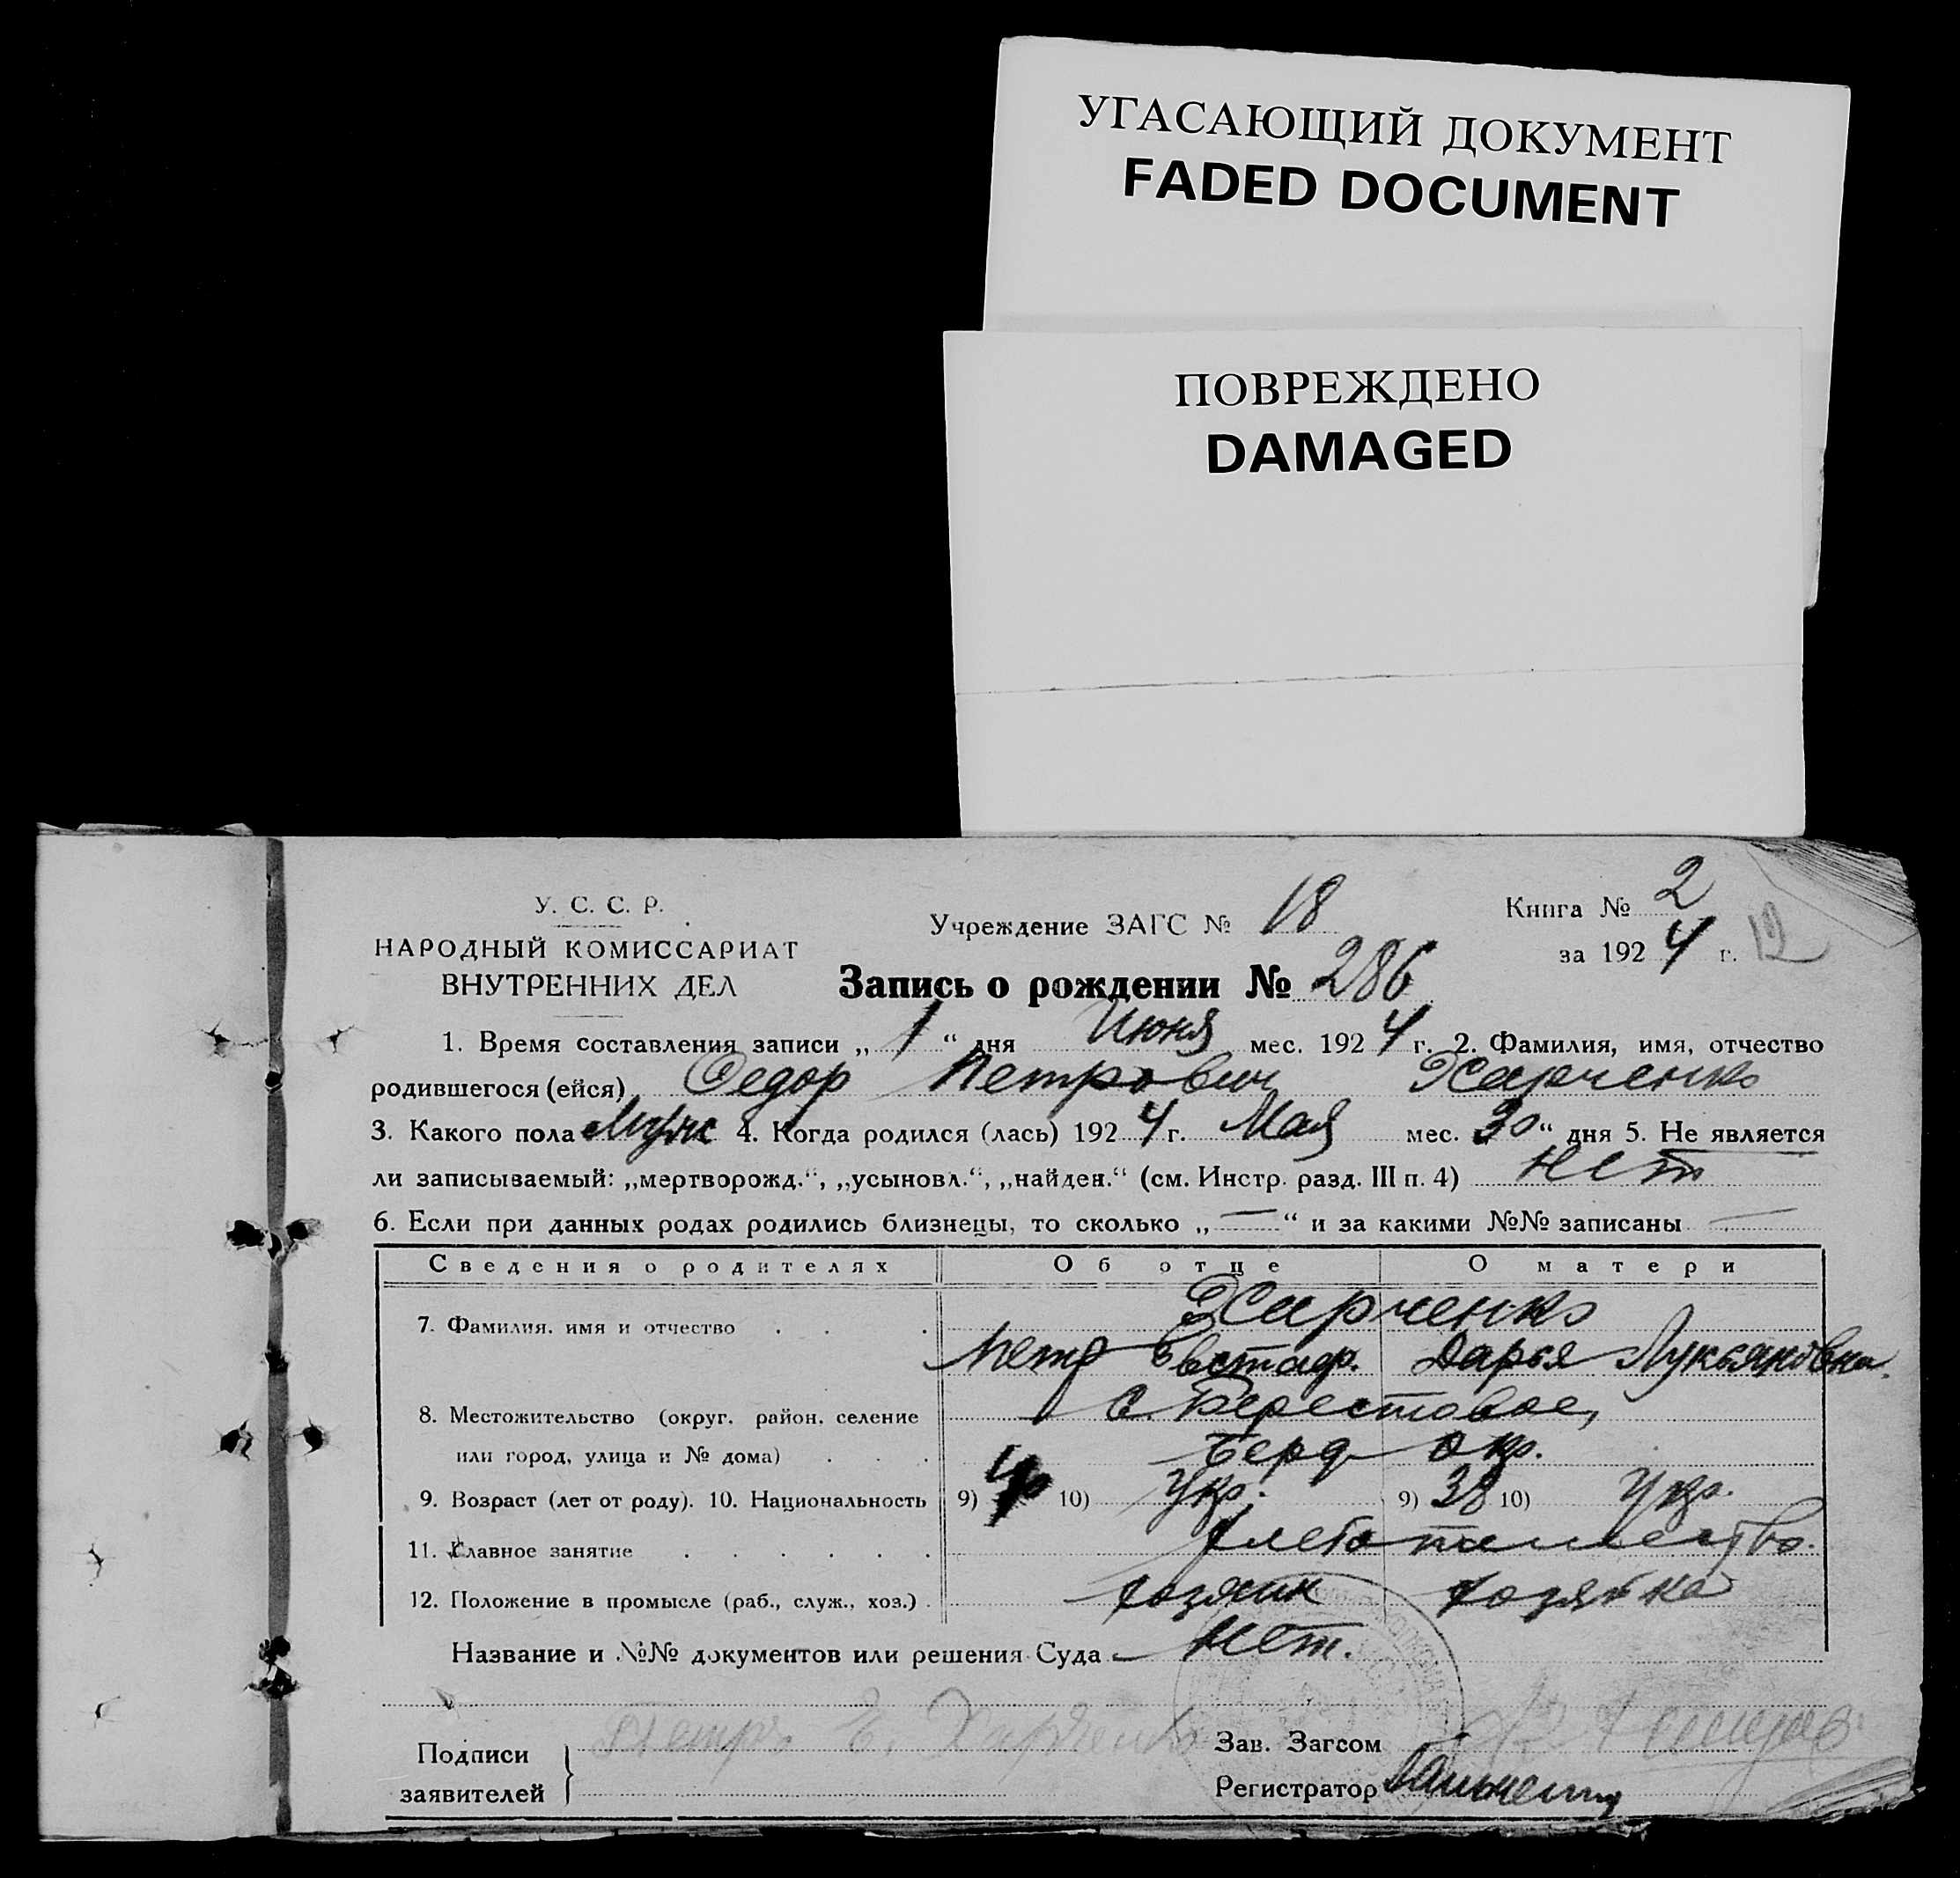 УГАСАЮЩИЙ ДОКУМЕНТ
FADED DOCUMENT
ПОВРЕЖДЕНО
DAMAGED
У. С. С. Р.
НАРОДНЫЙ КОМИССАРИАТ
ВНУТРЕННИХ ДЕЛ
Учреждение ЗАГС № 18
Книга № 2
за 1924 г. 12
Запись о рождении № 286
1. Время составления записи „1“ дня Июня мес. 1924 г. 2. Фамилия, имя, отчество
родившегося (ейся) Федор Петрович Харченко
3. Какого пола Муж 4. Когда родился (лась) 1924 г. Мая мес. 30“ дня 5. Не является
ли записываемый: „мертворожд.“, „усыновл.“, „найден.“ (см. Инстр. разд. III п. 4) нет
6. Если при данных родах родились близнецы, то сколько „—“ и за какими №№ записаны —
Сведения о родителях Об отце О матери
7. Фамилия, имя и отчество Харченко
Петр Евстаф. Дарья Лукьяновна
8. Местожительство (округ, район, селение с. Берестовое,
или город, улица и № дома) Берд окр.
9. Возраст (лет от роду). 10. Национальность 9) 40 10) Укр. 9) 38 10) Укр.
11. Главное занятие хлебопашество.
12. Положение в промысле (раб., служ., хоз.) хозяин хозяйка
Название и №№ документов или решения Суда — Нет.
Подписи
заявителей
Петр Е. Харченко
Зав. Загсом
Регистратор